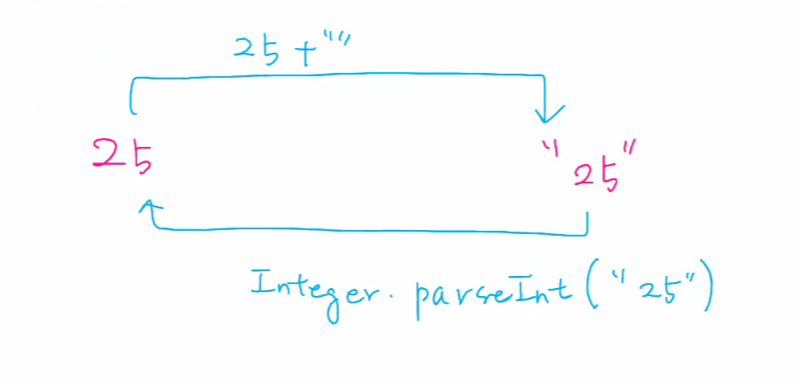 25 + ""
25
"25"
Integer.parseInt("25")